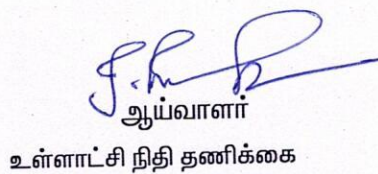 ஆய்வாளர்
உள்ளாட்சி நிதி தணிக்கை